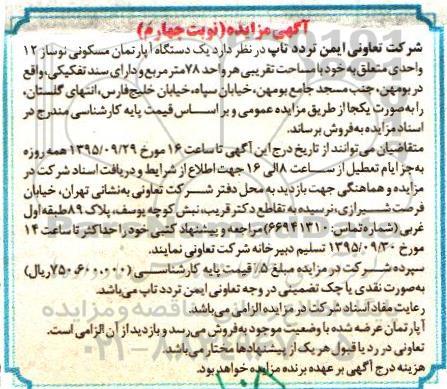 آگهی مزایده (نوبت چهارم)
شرکت تعاونی ایمن تردد تاپ در نظر دارد یک دستگاه آپارتمان مسکونی نوساز ۱۲
واحدی متعلق به خود با مساحت تقریبی هر واحد ۷۸ متر مربع و دارای سند تفکیکی، واقع
در بومهن، جنب مسجد جامع بومهن، خیابان سپاه، خیابان خلیج فارس، انتهای گلستان،
را به صورت یکجا از طریق مزایده عمومی و بر اساس قیمت پایه کارشناسی مندرج در
اسناد مزایده به فروش برساند.
متقاضیان می‌توانند از تاریخ درج این آگهی تا ساعت ۱۶ مورخ ۱۳۹۵/۰۹/۲۹ همه روزه
به جز ایام تعطیل از ساعت ۸ الی ۱۶ جهت اطلاع از شرایط و دریافت اسناد شرکت در
مزایده و هماهنگی جهت بازدید به محل دفتر شرکت تعاونی به نشانی تهران، خیابان
فرصت شیرازی، نرسیده به تقاطع دکتر قریب، نبش کوچه یوسف، پلاک ۸۹ طبقه اول
غربی (شماره تماس: ۶۶۹۴۱۳۱۰) مراجعه و پیشنهاد کتبی خود را حداکثر تا ساعت ۱۴
مورخ ۱۳۹۵/۰۹/۳۰ تسلیم دبیرخانه شرکت تعاونی نمایند.
سپرده شرکت در مزایده مبلغ ۵٪ قیمت پایه کارشناسی (۷۵۰,۶۰۰,۰۰۰ ریال)
به صورت نقدی یا چک تضمینی در وجه تعاونی ایمن تردد تاپ می‌باشد.
رعایت مفاد اسناد شرکت در مزایده الزامی می‌باشد.
آپارتمان عرضه شده با وضعیت موجود به فروش می‌رسد و بازدید از آن الزامی است.
تعاونی در رد یا قبول هر یک از پیشنهادها مختار می‌باشد.
هزینه درج آگهی بر عهده برنده مزایده خواهد بود.